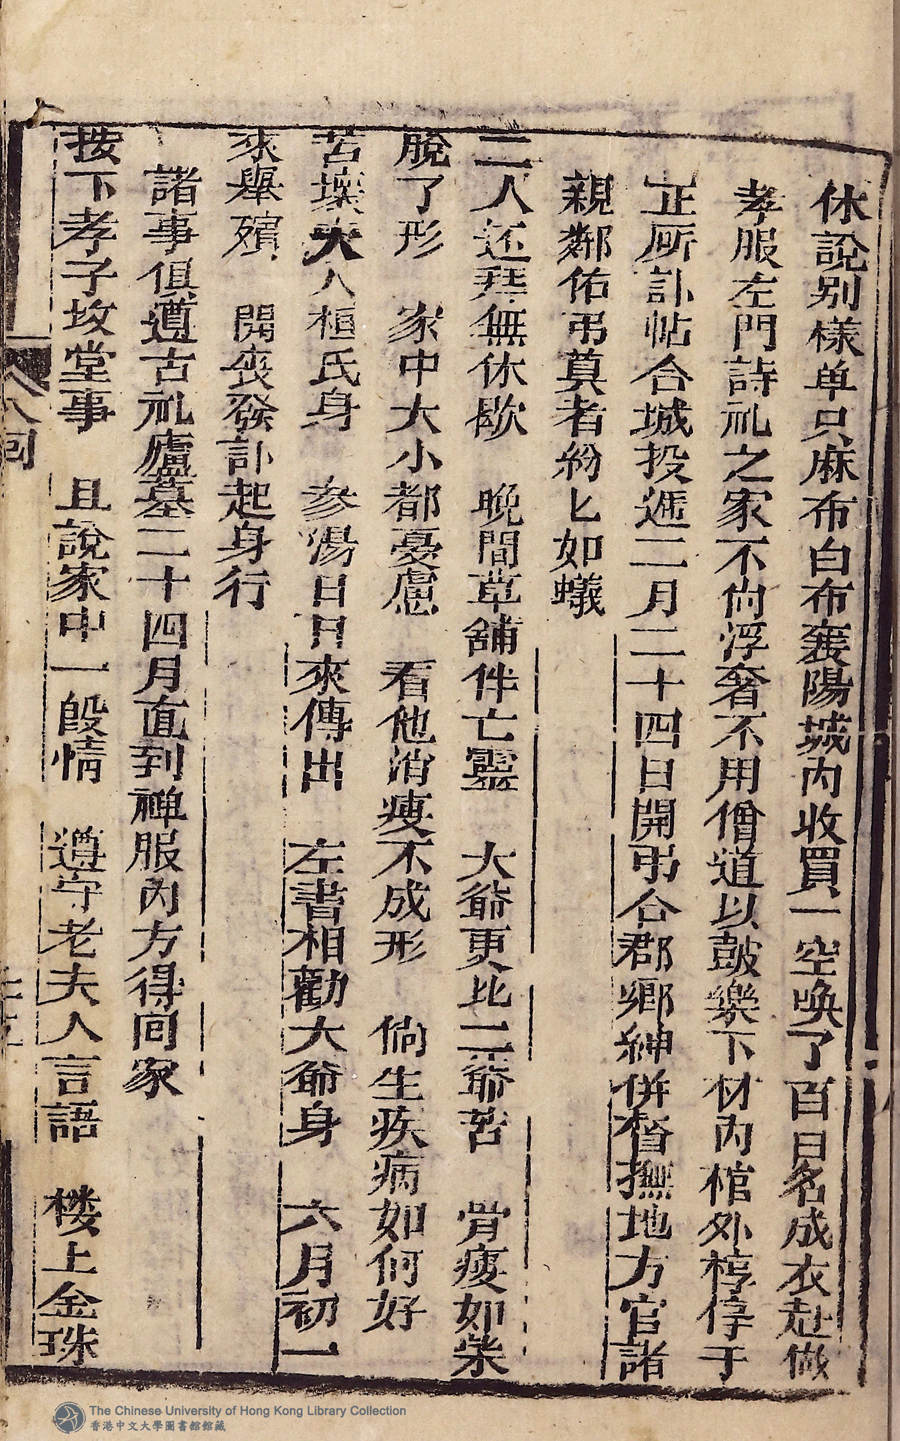 休說别樣单只麻布白布襄陽城內收買一空唤了百日名成衣赴做
孝服左門詩礼之家不尙浮奢不用僧道以鼓樂下材內棺外椁停于
正所訃帖合城投遞二月二十四日開弔合郡鄉紳併督撫地方官諸
親鄰佑弔奠者紛匕如蟻
二人还琹無休歇　晚間草舖伴亡靈　大爺更比二爺苦　骨瘦如柴
脫了形　家中大小都憂慮　看他消瘦不成形　倘生疾病如何好
苦壞夫人桓氏身　参陽日日來傳出　左書相勸大爺身　六月初一
來舉殯　開丧發訃起身行
諸事俱遵古礼廬墓二十四月直到禅服內方得囘家
按下孝子坟堂事　且說家中一段情　遵守老夫人言語　楼上金珠
八回
The Chinese University of Hong Kong Library Collection
香港中文大學圖書館館藏